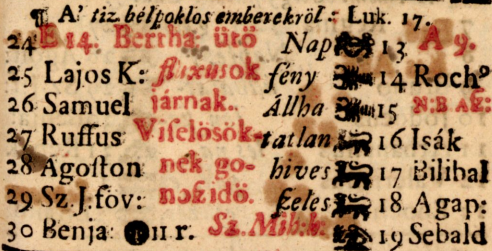 ¶ A' tiz bélpoklos emberekröl: Luk. 17.
24 E 14. Bertha ütö Nap 13 A 9.
25 Lajos K: fluxusok fény 14 Roch9
26 Samuel járnak. Állha 15 N: B Aſ:
27 Ruffus Viſelösök- tatlan 16 Isák
28 Agoſton nek go- hives 17 Bilibal
29 Sz. J: föv: noſz idö. ſzeles 18 Agap:
30 Benja: 11 r. Sz. Mih: h: 19 Sebald